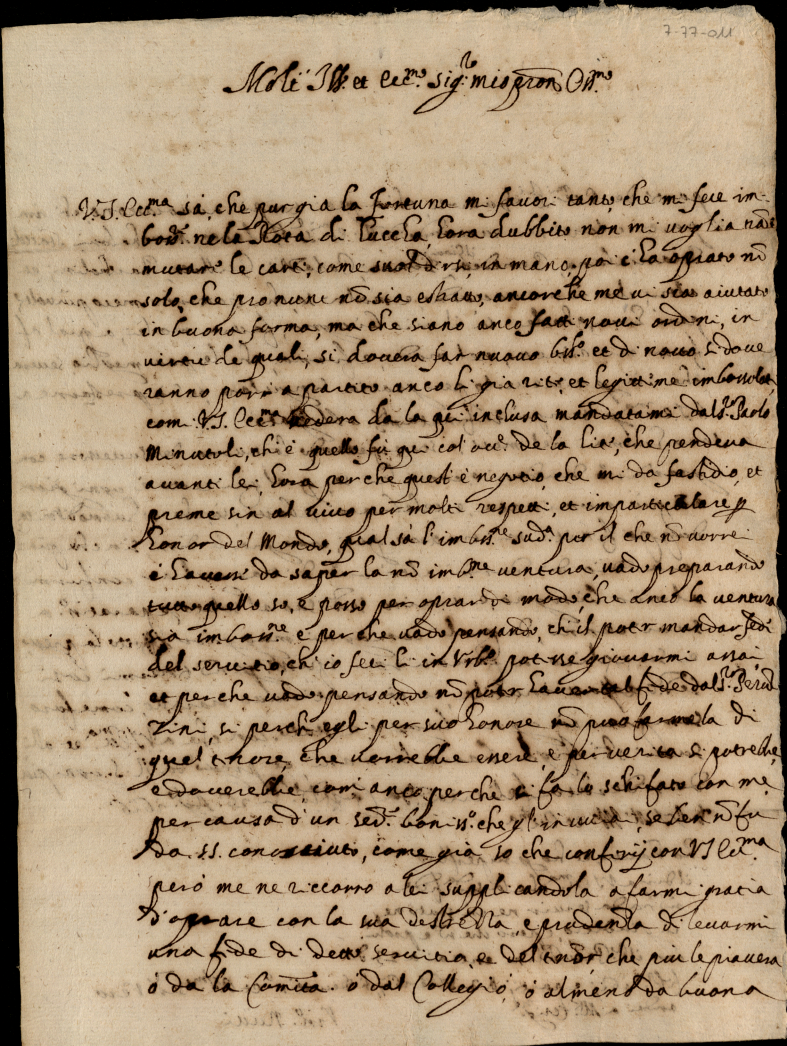 7-77-011
Molt' Ill. et Ecc.mo Sig.re mio pron Oss.mo
V.S. Ecc.ma sà, che pur gia la Fortuna mi favori tanto, che mi fece im
bors. ne la Rota di Luccha, hora dubbito non mi voglia
mutare le carti, come in mano, poi c'ha oprato nõ
solo, che nõ sia estratto, ancorche me vi sia aiutato
in buona forma, ma che siano anco fatti novi ordeni, in
virtu de quali, si dovera far nuovo et di novo si dove
ranno porre a partito anco li gia et legittime imbossolati
com V.S. Ecc.ma vedera da la qui inclusa mandatami dal S.r Paolo
Minutoli, ch'è quello fu qui col de la lite, che pendeva
avanti lei, hora perche quest'è negotio, che mi da fastidio, et
preme sin al vivo per molti rispetti, et imparticolare p
honor del Mondo, qual sà l' imb.ne sud.a per il che nõ vorrei
c'havessi da saper la nõ ventura, vado preparando
tutto quello so, e posso per oprar di modo, che anco la ventura
sia e perche vado pensando, ch'il poter mandar fedi
del servitio, ch'io feci li in Urb.o potesse giovarmi assai
et perche vado pensando nõ poter haver tal fede dal S.r
zini, si perch egli per suo honore nõ puo farmela di
quel tenore, che vorrebbe essere, e per verita si potrebbe,
e doverebbe, com'anco perche si fa lo schifato con me,
per causa d'un che gl'inviai, se ben nõ fu
da SS. conosciuto, come gia so che conferij con VS Ecc.ma
però me ne riccorro a lei supplicandola a farmi gratia
d'oprare con la sua destrezza, e prudenza di levarmi
una fede di detto servitio, et del tenor, che piu le piacera
ó da la Comita. ó dal Collegio, ó almeno da buona